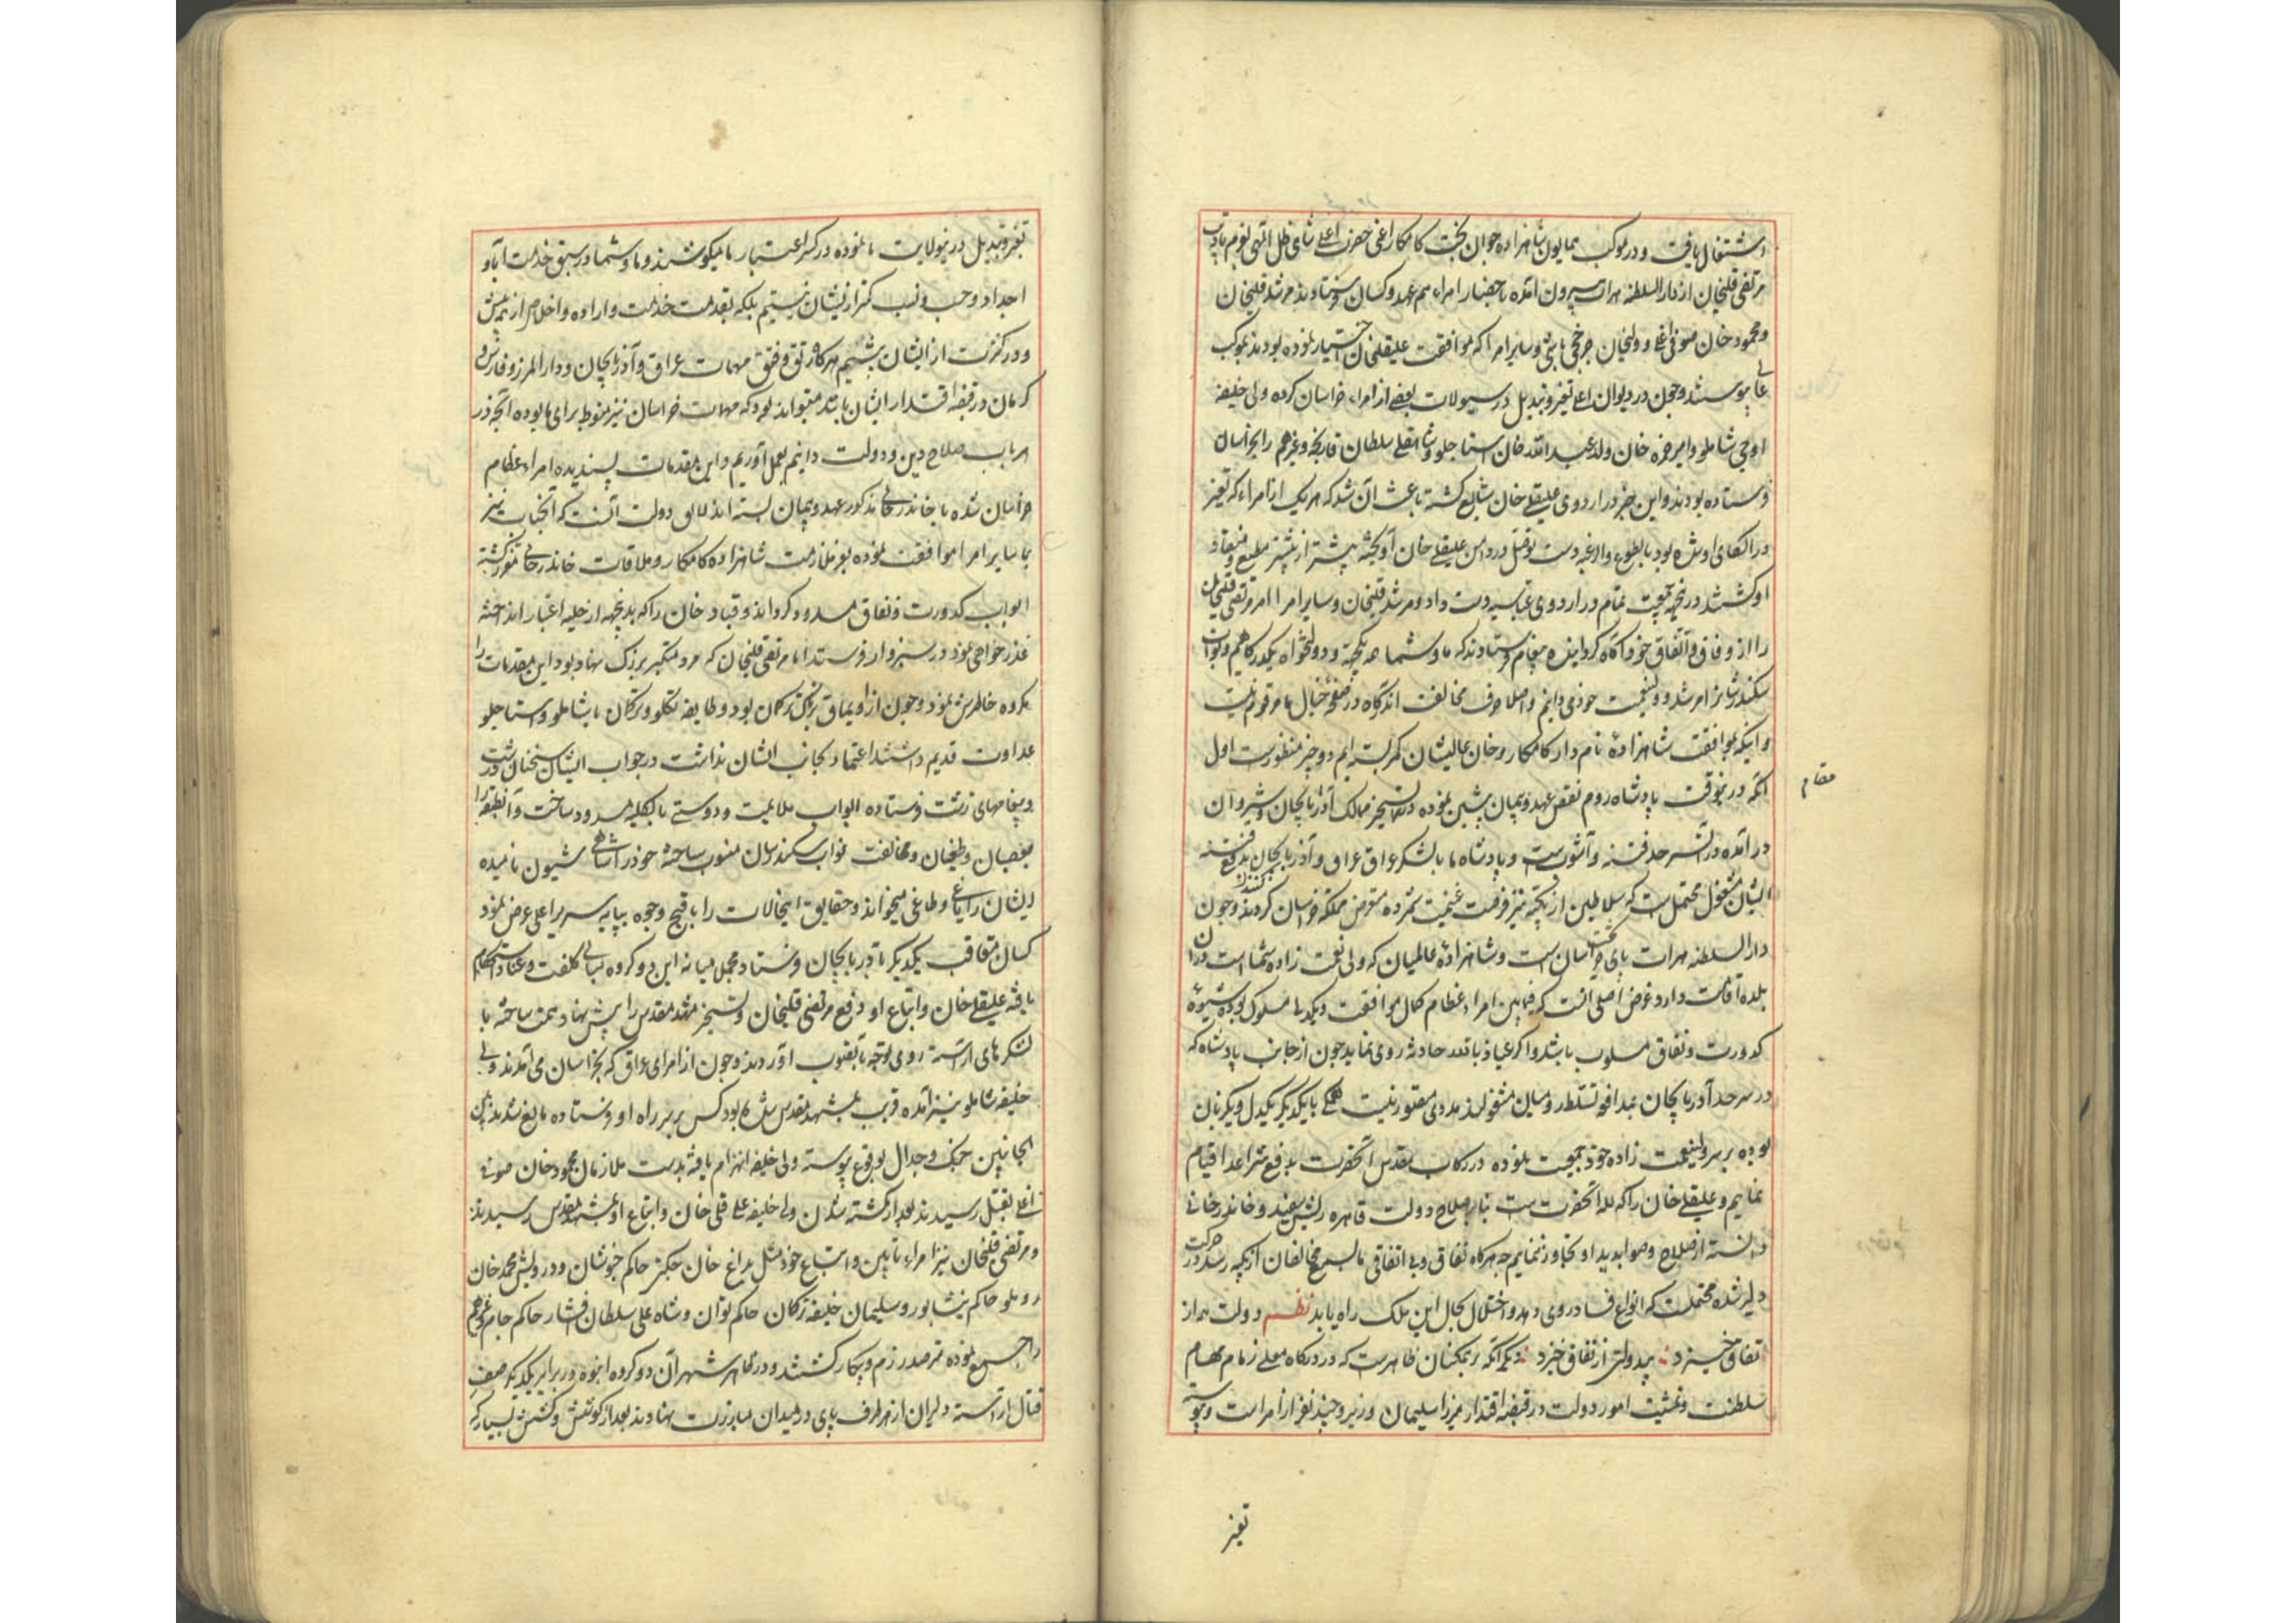 اشتغال یافت و در موکب همایون شاهزاده جوان بخت کامکار اعنی حضرت اعلی شاهی ظل اللهی بعزم تادیب
مرتضی قلیخان از دار السلطنه هرات بیرون آمده باحضار امراء هم عهد کسان فرستادند مرشد قلیخان
و محمود خان صوفی اغلی و ولیخان چرخچی باشی و سایر امرا که موافقت علیقلیخان اختیار نموده بودند بموکب
عالی پیوستند و چون در دیوان اعلی تغیر و تبدیل در تیولات بعضی از امراء خراسان کرده ولی خلیفه
اوجی شاملو و امیر حمزه خان ولد عبدالله خان استاجلو و شاهقلی سلطان قارنجه و غیرهم را بخراسان
فرستاده بودند و این خبر در اردوی علیقلی خان شایع گشته باعث آن شد که هر یک از امراء که تغیر
در الکای او شده بود بالطوع والرغبه دست توسل در دامن علیقلی خان آویخته بیشتر از پیشتر مطیع و منقاد
او گشتند در نتیجه جمعیت تمام در اردوی عباسیه دست داد و مرشد قلیخان و سایر امرا امر مرتضی قلیخان
را از وفاق و اتفاق خود آگاه گردانیده پیغام فرستادند که ما و شما همه یکجهة و دولتخواه یکدرگاهیم و نواب
سکندر شانرا مرشد و ولینعمت خود می دانیم و اصلا حرف مخالفت آندرگاه در صفحه خیال ما مرقوم نیست
و اینکه بموافقت شاهزاده نامدار کامکار و خان عالیشان کمر بسته ایم دو چیز منظورست اول
آنکه درینوقت پادشاه روم نقض عهد و پیمان پیشین نموده در تسخیر ممالک آذربایجان و شیروان
مقام
در آمده در آن سرحد فتنه و آشوبست و پادشاه ما با لشکر عراق و آذربایجان بدفع فتنه
ایشان مشغول محتملست که سلاطین ازبکیه نیز فرصت غنیمت شمرده متعرض مملکت خراسان گردند و چون
کنند
دار السلطنه هرات پای تخت خراسان است و شاهزاده عالمیان که ولی نعمت زاده شماست در ان
بلده اقامت دارد غرض اصلی آنست که فیمابین امراء عظام کمال موافقت و یکدلی مسلوک بوده شیوه
کدورت و نفاق مسلوب باشد و اگر عیاذا بالله حادثه روی نماید چون از جانب پادشاه که
در سرحد آذربایجان بمدافعه تسلط رومیان مشغولند مددی مقدور نیست همگی با یکدیگر یکدل و یکزبان
بوده بر سر ولینعمت زاده خود جمعیت نموده در رکاب مقدس آنحضرت بدفع شر اعدا قیام
نمائیم و علیقلی خان را که لله آنحضرت است بنابر صلاح دولت قاهره ریش سفید و خاندرخانی
دانسته از صلاح و صوابدید او تجاوز ننمائیم چه هرگاه نفاق و بی اتفاقی ما بسمع مخالفان ازبکیه رسد در حرکت
دلیر شده محتملست که انواع فساد روی دهد و اختلال بحال این ملک راه یابد نظم دولت همه از
اتفاق خیزد بیدولتی از نفاق خیزد دیگر آنکه بر همکنان ظاهرست که در درگاه معلی زمام مهام
سلطنت و تمشیت امور دولت در قبضه اقتدار میرزا سلیمان وزیر و چند نفر از امراست و پیوسته
تغیر
تغیر و تبدیل در تیولات ما نموده در کسر اعتبار ما میکوشند و ما و شما در سبق خدمت آبا و
اجداد و حسب و نسب کمتر از ایشان نیستیم بلکه بقدمت خدمت و اراده و اخلاص از همه پیش
و در کثرت از ایشان بیشیم هرگاه رتق و فتق مهمات عراق و آذربایجان و دار المرز و فارس و
کرمان در قبضه اقتدار ایشان باشد میتواند بود که مهمات خراسان نیز منوط برای ما بوده آنچه در
هر باب صلاح دین و دولت دانیم بعمل آوریم و این مقدمات پسندیده امراء عظام
خراسان شده با خاندرخانی مذکور عهد و پیمان بسته اند لایق دولت آنست که آنجناب نیز
با سایر امرا موافقت نموده بعز ملازمت شاهزاده کامکار و ملاقات خاندرخانی مفوز گشته
ابواب کدورت و نفاق مسدود گرداند و قباد خان را که بدینجهه از حلیه اعتبار انداخته
عذرخواهی نموده در سبزوار فرستد اما مرتضی قلیخان که مرد متکبر بزرک نهاد بود این مقدمات را
مکروه خاطرش نمود و چون از اویماق پرناک ترکمان بود و طایفه تکلو و ترکمان با شاملو و استاجلو
عداوت قدیم داشتند اعتماد بجانب ایشان نداشت در جواب ایشان سخنان درشت
و پیغامهای زشت فرستاده ابواب ملایمت و دوستی بالکلیه مسدود ساخت و آنطبقه را
بعصیان و طغیان و مخالفت نواب سکندر شان منسوب ساخته خود را شاهی سیون نامیده
ایشان را یاغی و طاغی میخواند و حقایق اینحالات را باقبح وجوه بپایه سریر اعلی عرض نمود
کسان متعاقب یکدیگر بآذربایجان فرستاد مجمل میانه این دو گروه مبانی کلفت و عناد استحکام
یافته علیقلی خان و اتباع او دفع مرتضی قلیخان و تسخیر مشهد مقدس را پیش نهاد همت ساخته با
لشکرهای آراسته روی توجه بآنصوب آوردند و چون از امرای عراق که بخراسان می آمدند ولی
خلیفه شاملو نیز آمده قریب بمشهد مقدس شده بود کس بر سر راه او فرستاده مانع شدند
الجانبین جنک و جدال بوقوع پیوسته ولی خلیفه انهزام یافته بدست ملازمان محمود خان صوفی
اغلی بقتل رسید بعد از کشته شدن ولی خلیفه علی قلی خان و اتباع او بمشهد مقدس رسیدند
و مرتضی قلیخان نیز امراء تابین و اتباع خود مثل بداغ خان چکنی حاکم خبوشان و درویش محمد خان
روملو حاکم نیشابور و سلیمان خلیفه ترکمان حاکم تون و شاه علی سلطان افشار حاکم جام و غیرهم
را جمع نموده مترصد رزم و پیکار گشتند و در ظاهر شهر آن دو گروه انبوه در برابر یکدیگر صف
قتال آراسته دلیران از هر طرف پای در میدان مبارزت نهادند بعد از کوشش و کشش بسیار که